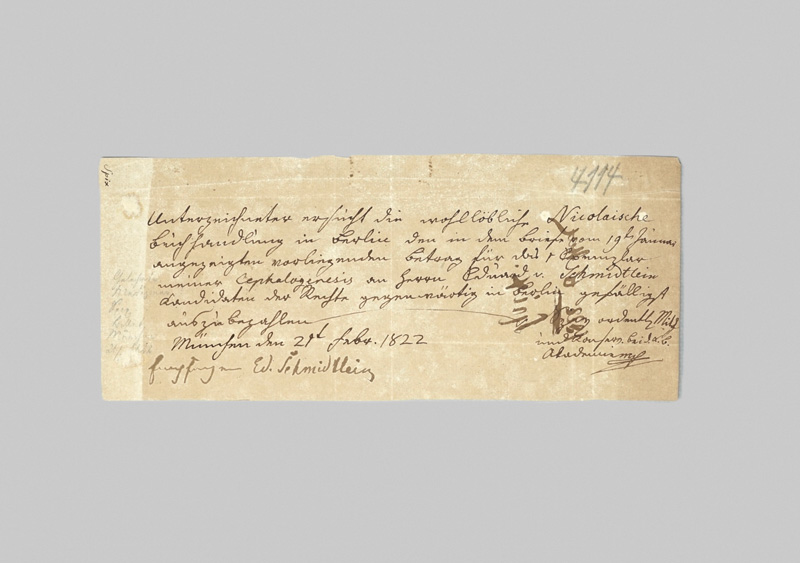 Spix
4114
Unterzeichneter ersucht die wohllöbliche Nicolaische
Buchhandlung in Berlin den in dem Briefe vom 19t Jänner
angezeigten vorliegenden Betrag für das 1 Exemplar
meiner Cephalogenesis an Herrn Eduard v. Schmidtlein
Kandidaten der Rechte gegenwärtig in Berlin gefälligst
auszubezahlen
München den 21t Febr. 1822
ordentl. Mitgl.
und Konserv. bei d. k. b.
Akademie
Empfangen Ed. Schmidtlein